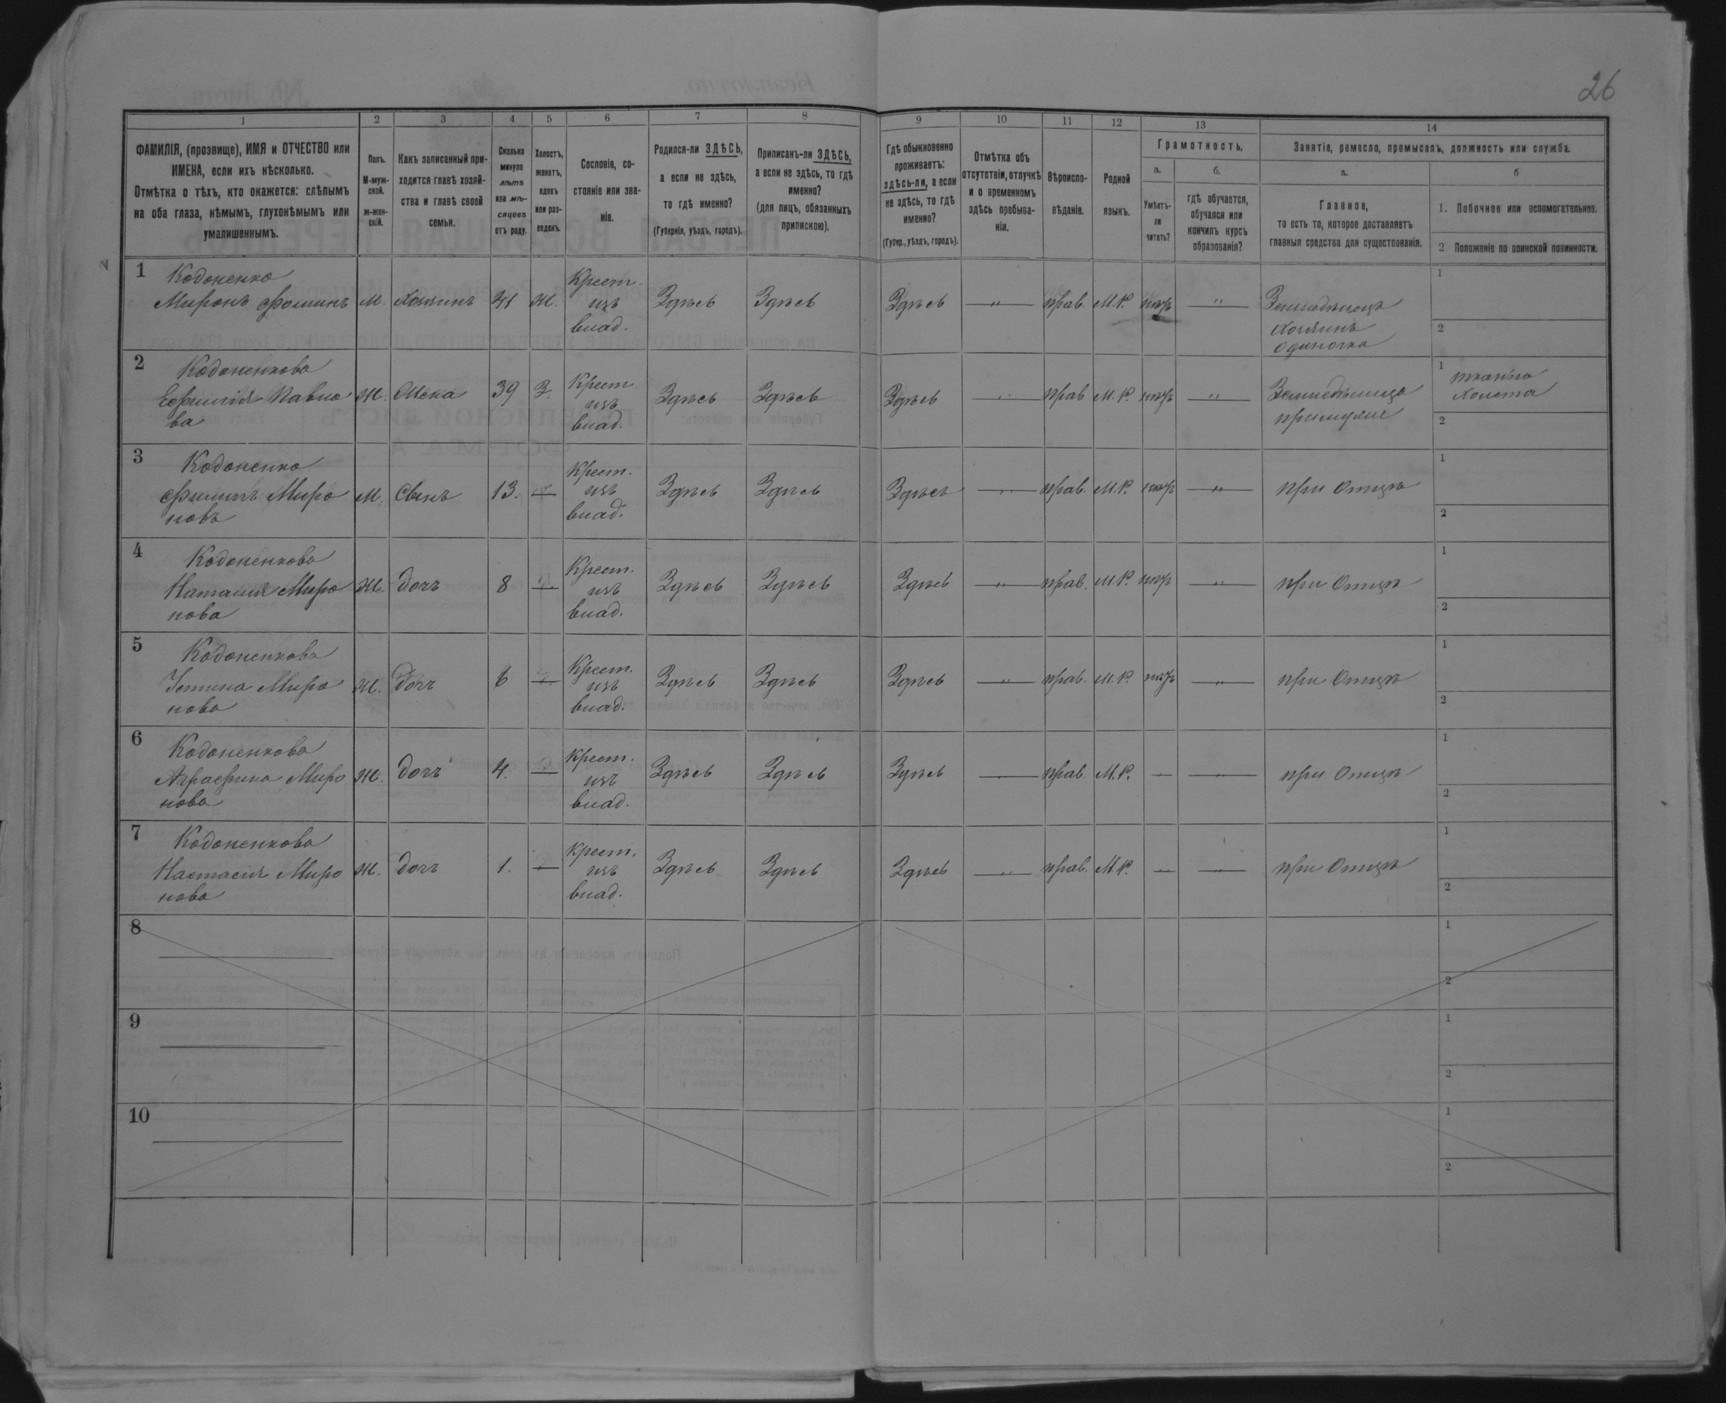 26
1 2 3 4 5 6 7 8 9 10 11 12 13 14
ФАМИЛІЯ, (прозвище), ИМЯ и ОТЧЕСТВО или
ИМЕНА, если ихъ нѣсколько.
Отмѣтка о тѣхъ, кто окажется: слѣпымъ
на оба глаза, нѣмымъ, глухонѣмымъ или
умалишеннымъ.
Полъ.
М-муж-
ской.
ж-жен-
скій.
Какъ записанный при-
ходится главѣ хозяй-
ства и главѣ своей
семьи.
Сколько
минуло
лѣтъ
или мѣ-
сяцевъ
отъ роду.
Холостъ,
женатъ,
вдовъ
или раз-
веденъ.
Сословіе, со-
стояніе или зва-
ніе.
Родился-ли ЗДѢСЬ,
а если не здѣсь,
то гдѣ именно?
(Губернія, уѣздъ, городъ).
Приписанъ-ли ЗДѢСЬ,
а если не здѣсь, то гдѣ
именно?
(для лицъ, обязанныхъ
припискою).
Гдѣ обыкновенно
проживаетъ:
здѣсь-ли, а если
не здѣсь, то гдѣ
именно?
(Губер., уѣздъ, городъ).
Отмѣтка объ
отсутствіи, отлучкѣ
и о временномъ
здѣсь пребыва-
ніи.
Вѣроиспо-
вѣданіе.
Родной
языкъ.
Грамотность.
а.
Умѣетъ-
ли
читать?
б.
гдѣ обучается,
обучался или
кончилъ курсъ
образованія?
Занятіе, ремесло, промыселъ, должность или служба.
а.
Главное,
то есть то, которое доставляетъ
главныя средства для существованія.
б
1. Побочное или вспомогательное.
2 Положеніе по воинской повинности.
1 Кодоненко
Миронъ Фоминъ М. Хозяинъ 41 Ж. Крест. изъ влад. Здѣсь Здѣсь Здѣсь — „ — прав. М.Р. — „ — Земледѣлецъ
хозяинъ
одиночка
1
2
2 Кодоненкова
Ефимія Павло
ва Ж. Жена 39 З. Крест. изъ влад. Здѣсь Здѣсь Здѣсь — „ — прав М.Р. — „ — Земледѣлица
при мужѣ
1 тканьѐ
холста
2
3 Кодоненко
Филипъ Миро
новъ М. Сынъ 13. — Крест. изъ влад. Здѣсь Здѣсь Здѣсь — „ — прав. М.Р. — „ — при Отцѣ
1
2
4 Кодоненкова
Наталія Миро
нова Ж. дочъ 8 — Крест. изъ влад. Здѣсь Здѣсь Здѣсь — „ — прав. М.Р. — „ — при Отцѣ
1
2
5 Кодоненкова
Устина Миро
нова Ж. Дочъ 6 — Крест. изъ влад. Здѣсь Здѣсь Здѣсь — „ — прав. М.Р. — „ — при Отцѣ
1
2
6 Кодоненкова
Аграфина Миро
нова Ж. дочъ 4. — Крест. изъ влад. Здѣсь Здѣсь Здѣсь — „ — прав. М.Р. — — „ — при Отцѣ
1
2
7 Кодоненкова
Настасія Миро
нова Ж. дочъ 1. — Крест. изъ влад. Здѣсь Здѣсь Здѣсь — „ — прав. М.Р. — — „ — при Отцѣ
1
2
8
1
2
9
1
2
10
1
2